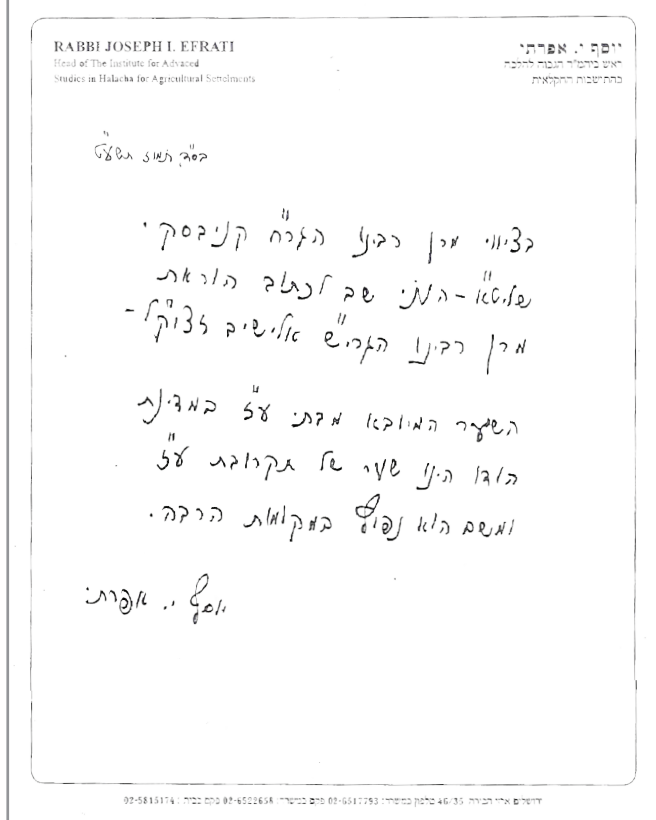 RABBI JOSEPH I. EFRATI
Head of The Institute for Advaced
Studies in Halacha for Agricultural Settelments
יוסף י. אפרתי
ראש ביהמ"ד הגבוה להלכה
בהתישבות החקלאית
בס"ד תמוז תשע"ט
בציווי מרן רבינו הגר"ח קניבסקי
שליט"א - הנני שב לכתוב הוראת
מרן רבינו הגרי"ש אלישיב זצוק"ל -
השיער המיובא מבתי ע"ז במדינת
הודו הינו שיער של תקרובת ע"ז
ומשם הוא נפוץ במקומות הרבה.
יוסף י. אפרתי
ירושלים 46/35 טלפון במשרד: 02-6517793 פקס במשרד: 02-6522658 פקס בבית: 02-5815174